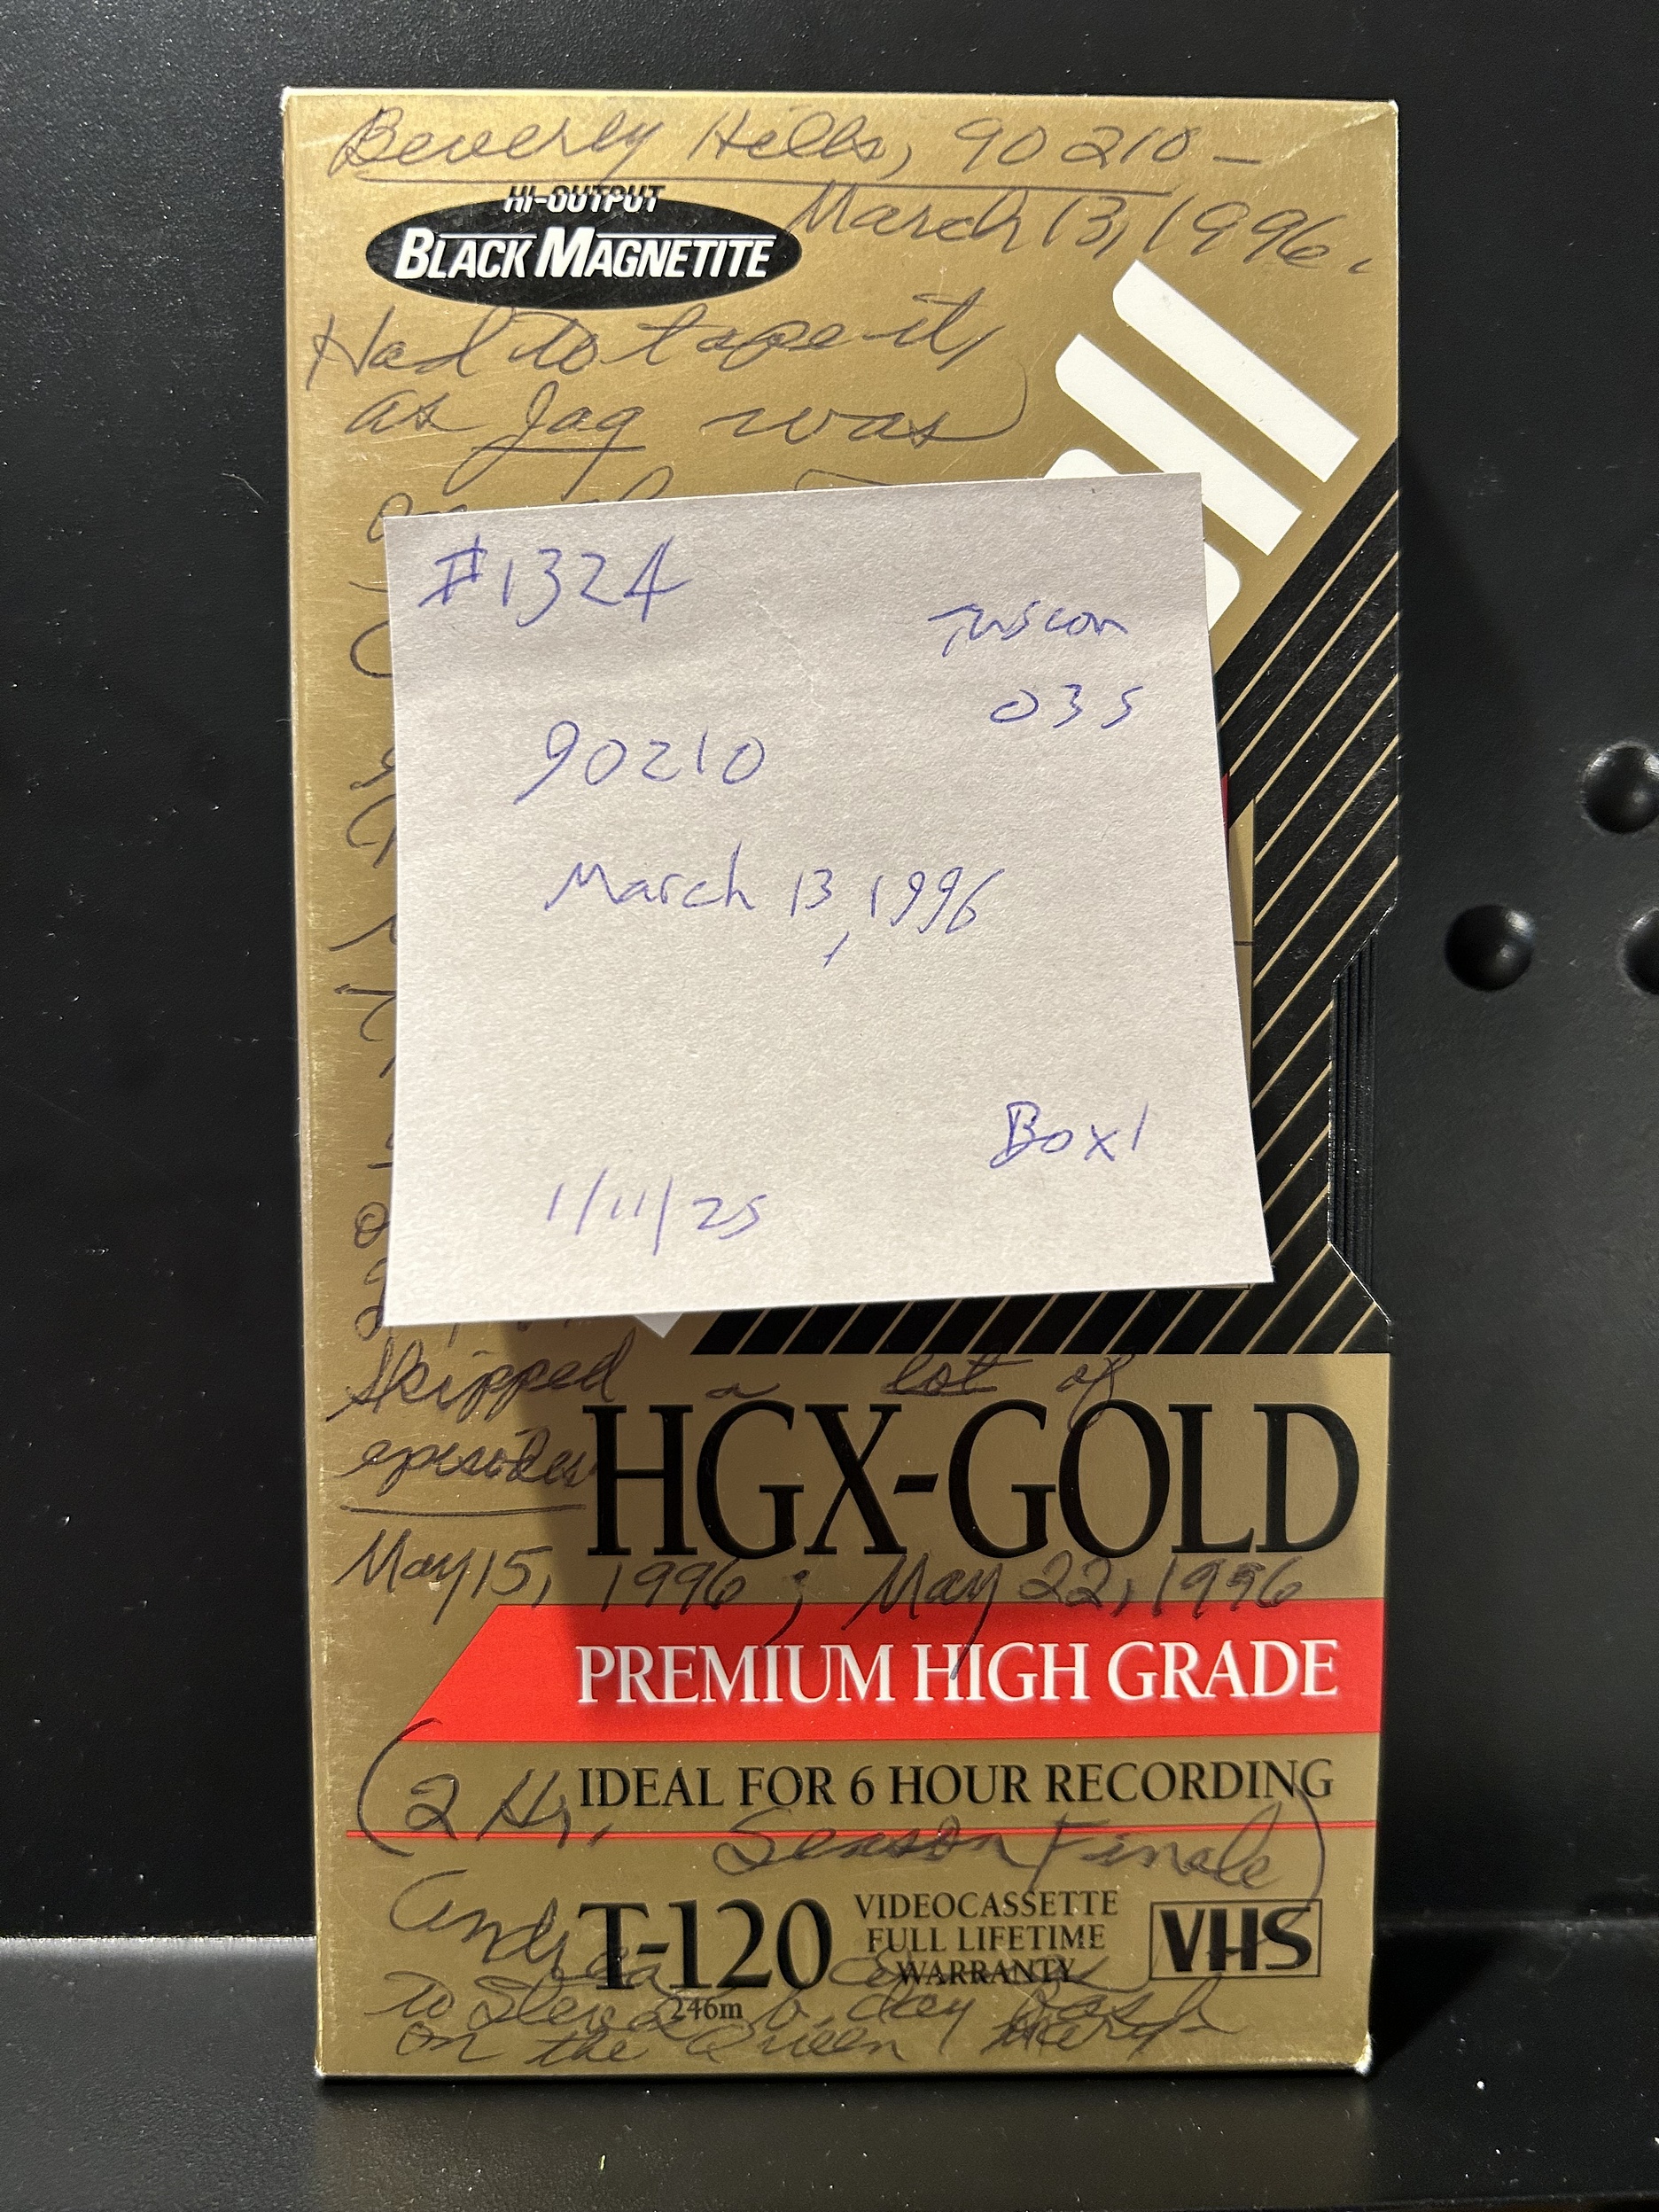 Beverly Hills, 90210 -
HI-OUTPUT
BLACK MAGNETITE
March 13, 1996.
Had to tape it,
as Jag was
#1324
Tuscon
035
90210
March 13, 1996
Box 1
1/11/25
Skipped a lot of
HGX-GOLD
episodes
May 15, 1996; May 22, 1996
PREMIUM HIGH GRADE
IDEAL FOR 6 HOUR RECORDING
(2 Hr. Season Finale)
T-120
246m
VIDEOCASSETTE
FULL LIFETIME
WARRANTY
VHS
Andrea
to Steve's b. day Bash
on the Queen Mary